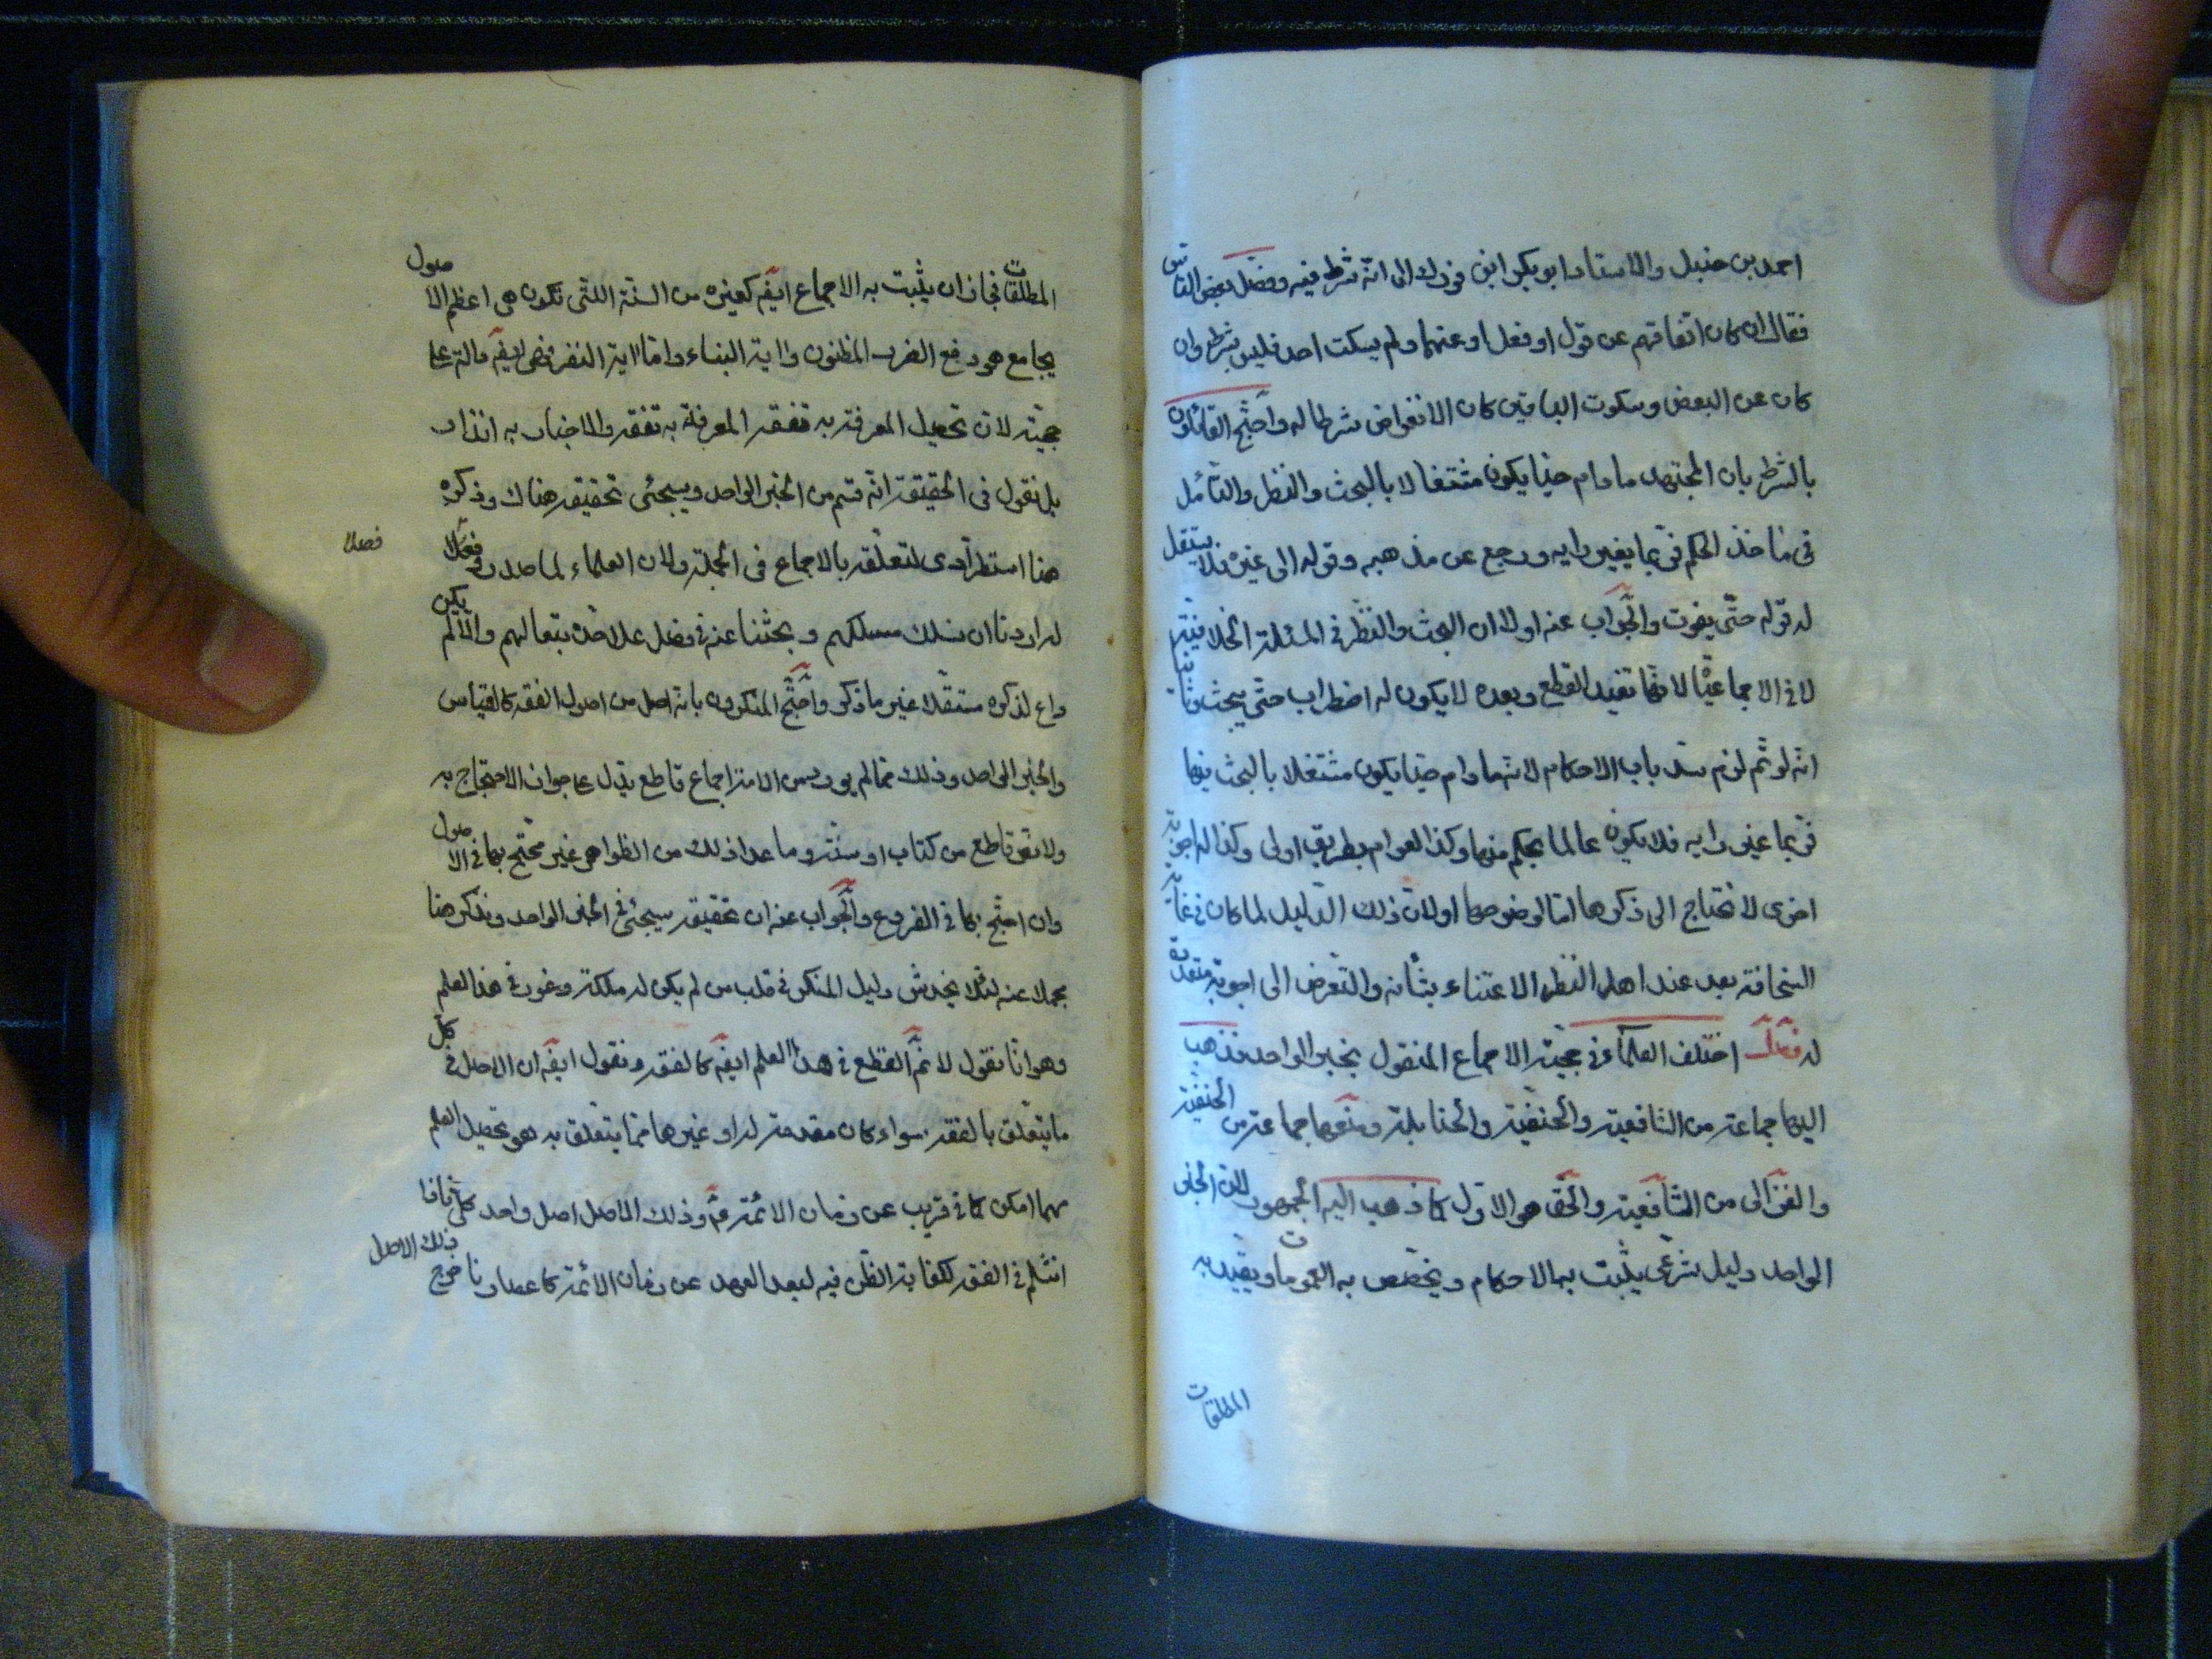 احمد بن حنبل والاستاد ابو بكر ابن فورك الى انّه شرط فيه وفصّل بعض الناس
فقال ان كان اتفاقهم عن قول او فعل او عنهما ولم يسكت احد فليس بشرط وان
كان عن البعض وسكوت الباقين كان الانقراض شرطا له واحتّج القائلون
بالشرط بان المجتهد ما دام حيّا يكون مشتغلا بالبحث والنظر والتأمّل
فى مأخذ الحكم فربما يغير رايه ورجع عن مذهبه وقوله الى غيره فلا يستقل
له قوله حتّى يفوت والجواب عنه اولا ان البحث والنظر فى المسئلة الخلافيّة
لا فى الاجماعيّا لانّها تفيد القطع وبعده لا يكون له اضطراب حتّى يبحث وثانيا
انّه لو تمّ لزم سدّ باب الاحكام لانه ما دام حيّا يكون مشتغلا بالبحث فيها
فربما غير رايه فلا يكون عالما بحكم منها وكذا العوام بطريق اولى وكذا له اجوبة
اخرى لا نحتاج الى ذكرها امّا لوضوحها او لانّ ذلك الدليل لما كان فى غاية
السخافة بعد عند اهل النظر الاعتناء بشأنه والتعرض الى اجوبة متعددة
له فصل اختلف العلماء فى حجيّة الاجماع المنقول بخبر الواحد فذهب
اليها جماعة من الشافعيّة والحنفيّة والحنابلة ومنعها جماعة من الحنفيّة
والغزّالى من الشافعيّة والحقّ هو الاوّل كما ذهب اليه الجمهور لان الخبر
الواحد دليل شرعى يثبت به الاحكام ويخصص به العموما ت ويقيّد به
المطلقات
المطلقات فجاز ان يثبت به الاجماع ايضّ كغيره من السنة اللتى تكون هى اعظم الاصول
بجامع هو دفع الضرر المظنون واية النباء وامّا اية النفر فهى ايضّ دالة على
حجيّته لان تحصيل المعرفة به تفقه المعرفة به تفقه والاخبار به انذار
بل نقول فى الحقيقة انّه قسم من الخبر الواحد وسيجئى تحقيقه هناك وذكره
هنا استطرادى لتعلّقه بالاجماع فى الجملة ولان العلماء لما عقدوا فصلا
فصلا
له اردنا ان نسلك مسلكهم وبحثنا عنه فى فصل علاحدة بتعا لهم والّا لم يكن
داع لذكره مستقلا غير ما ذكر واحتّج المنكرون بانّه اصل من اصول الفقه كالقياس
والخبر الواحد وذلك ممّا لم يرد من الامة اجماع قاطع يدّل على جواز الاحتجاج به
ولا نصّ قاطع من كتاب او سنّة وما عدا ذلك من الظواهر غير محتّج بها فى الاصول
وان احتّج بها فى الفروع والجواب عنه ان تحقيقه سيجئى فى الخبر الواحد ونذكر هنا
مجملا عنه لئلا يخدش دليل المنكر فى قلب من لم يكن له ملكة وغور فى هذا العلم
وهو انّا نقول لا نمّ القطع فى هذا العلم ايضّ كالفقه ونقول ايضّ ان الاصل فى كلّ
ما يتعلّق بالفقه سواء كان مقدمة له او غيرها ممّا يتعلّق به هو تحصيل العلم
مهما امكن كما فى قريب عن زمان الائمّة عّم وذلك الاصل اصل واحد كلّى فاذا
انثلم فى الفقه لكفاية الظّن فيه لبعد العهد عن زمان الائمّة كاعصارنا خرج ذلك الاصل